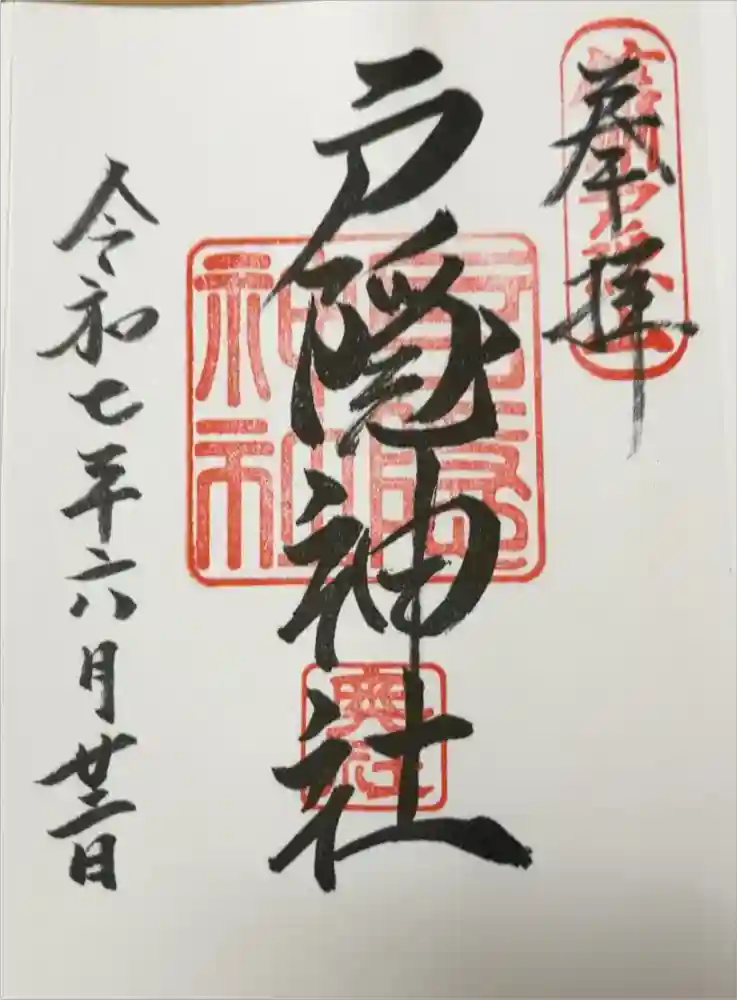 奉拝
戸隠神社
戸隠
神社
奥社
令和七年六月廿二日